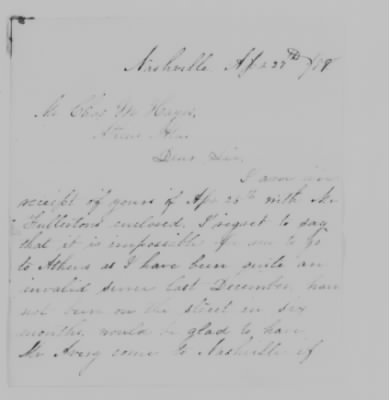 Nashville Apr 27th /78
Mr Chas M Hays,
Athens Ala
Dear Sir,
I am in
receipt of yours of Apr 25th with Mr
Fullertons enclosed. I regret to say
that it is impossible for me to go
to Athens as I have been quite an
invalid since last December, have
not been on the street in six
months, would be glad to have
Mr Avery come to Nashville if